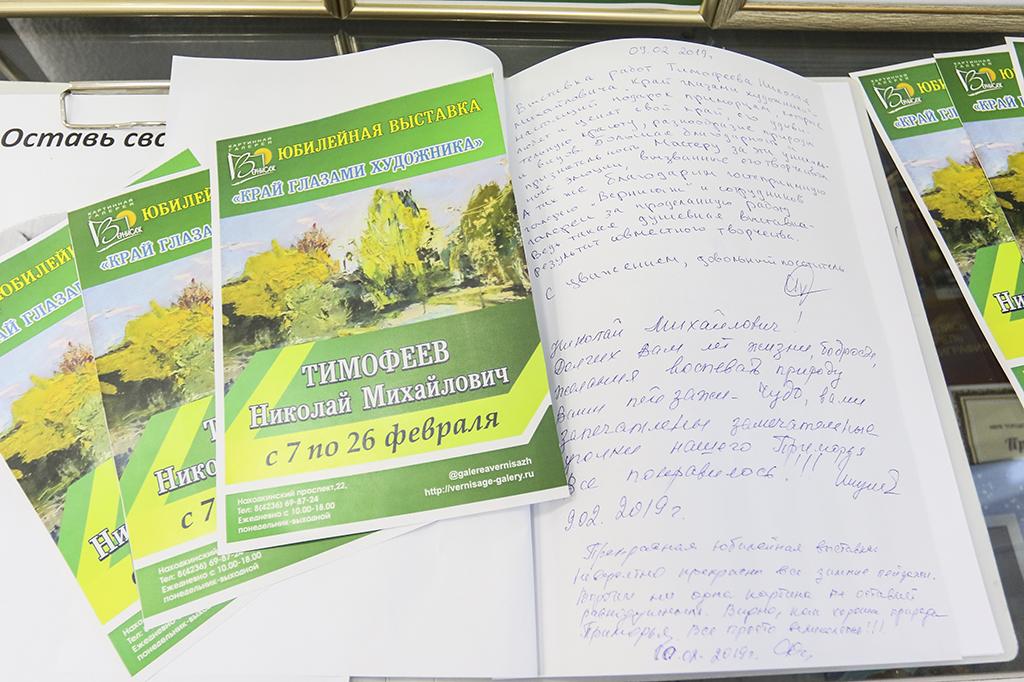 Оставь сво
КАРТИННАЯ ГАЛЕРЕЯ
Вернисаж
ЮБИЛЕЙНАЯ ВЫСТАВКА
«КРАЙ ГЛАЗАМИ ХУДОЖНИКА»
ТИМОФЕЕВ
Николай Михайлович
с 7 по 26 февраля
@galereavernisazh
http://vernisage-galery.ru
Находкинский проспект,22,
Тел: 8(4236) 69-87-24
Ежедневно с 10.00-18.00
понедельник-выходной
КАРТИННАЯ ГАЛЕРЕЯ
Вернисаж
ЮБИЛЕЙ
«КРАЙ ГЛАЗА
Т
Никол
с 7
Находкинский
Тел: 8(4236) 69-87-24
Ежедневно с 10.00-18.00
понедельник-выходной
ЮБИЛЕЙН
АЙ ГЛАЗАМИ
Ни
09.02 2019г.
Выставка работ Тимофеева Николая
Михайловича "Край глазами художника"
настоящий подарок приморцам, которые
любят и ценят свой край, его удиви-
тельную красоту, разнообразие природы
и видов. Огромная благодарность и
признательность Мастеру за
те эмоции, вызванные его творчеством.
А также благодарим гостеприимную
галерею "Вернисаж" и сотрудников
галереи за проделанную работу,
ведь такая душевная выставка-
результат совместного творчества.
С уважением, довольный посетитель
Николай Михайлович!
Долгих Вам лет жизни, бодрости,
желания воспевать природу,
Ваши пейзажи - чудо, вами
запечатлены замечательные
уголки нашего Приморья
Все понравилось!!!!
902. 2019г.
Прекрасная юбилейная выставка
Невероятно прекрасны все зимние пейзажи.
ни одна картина не оставит
равнодушным. Видно, как хороша природа
Приморья. Все просто великолепно!!!
10.02-2019г.
КАРТИННАЯ ГАЛЕРЕЯ
Вернисаж
ЮБИ
«КРАЙ ГЛ
Ни